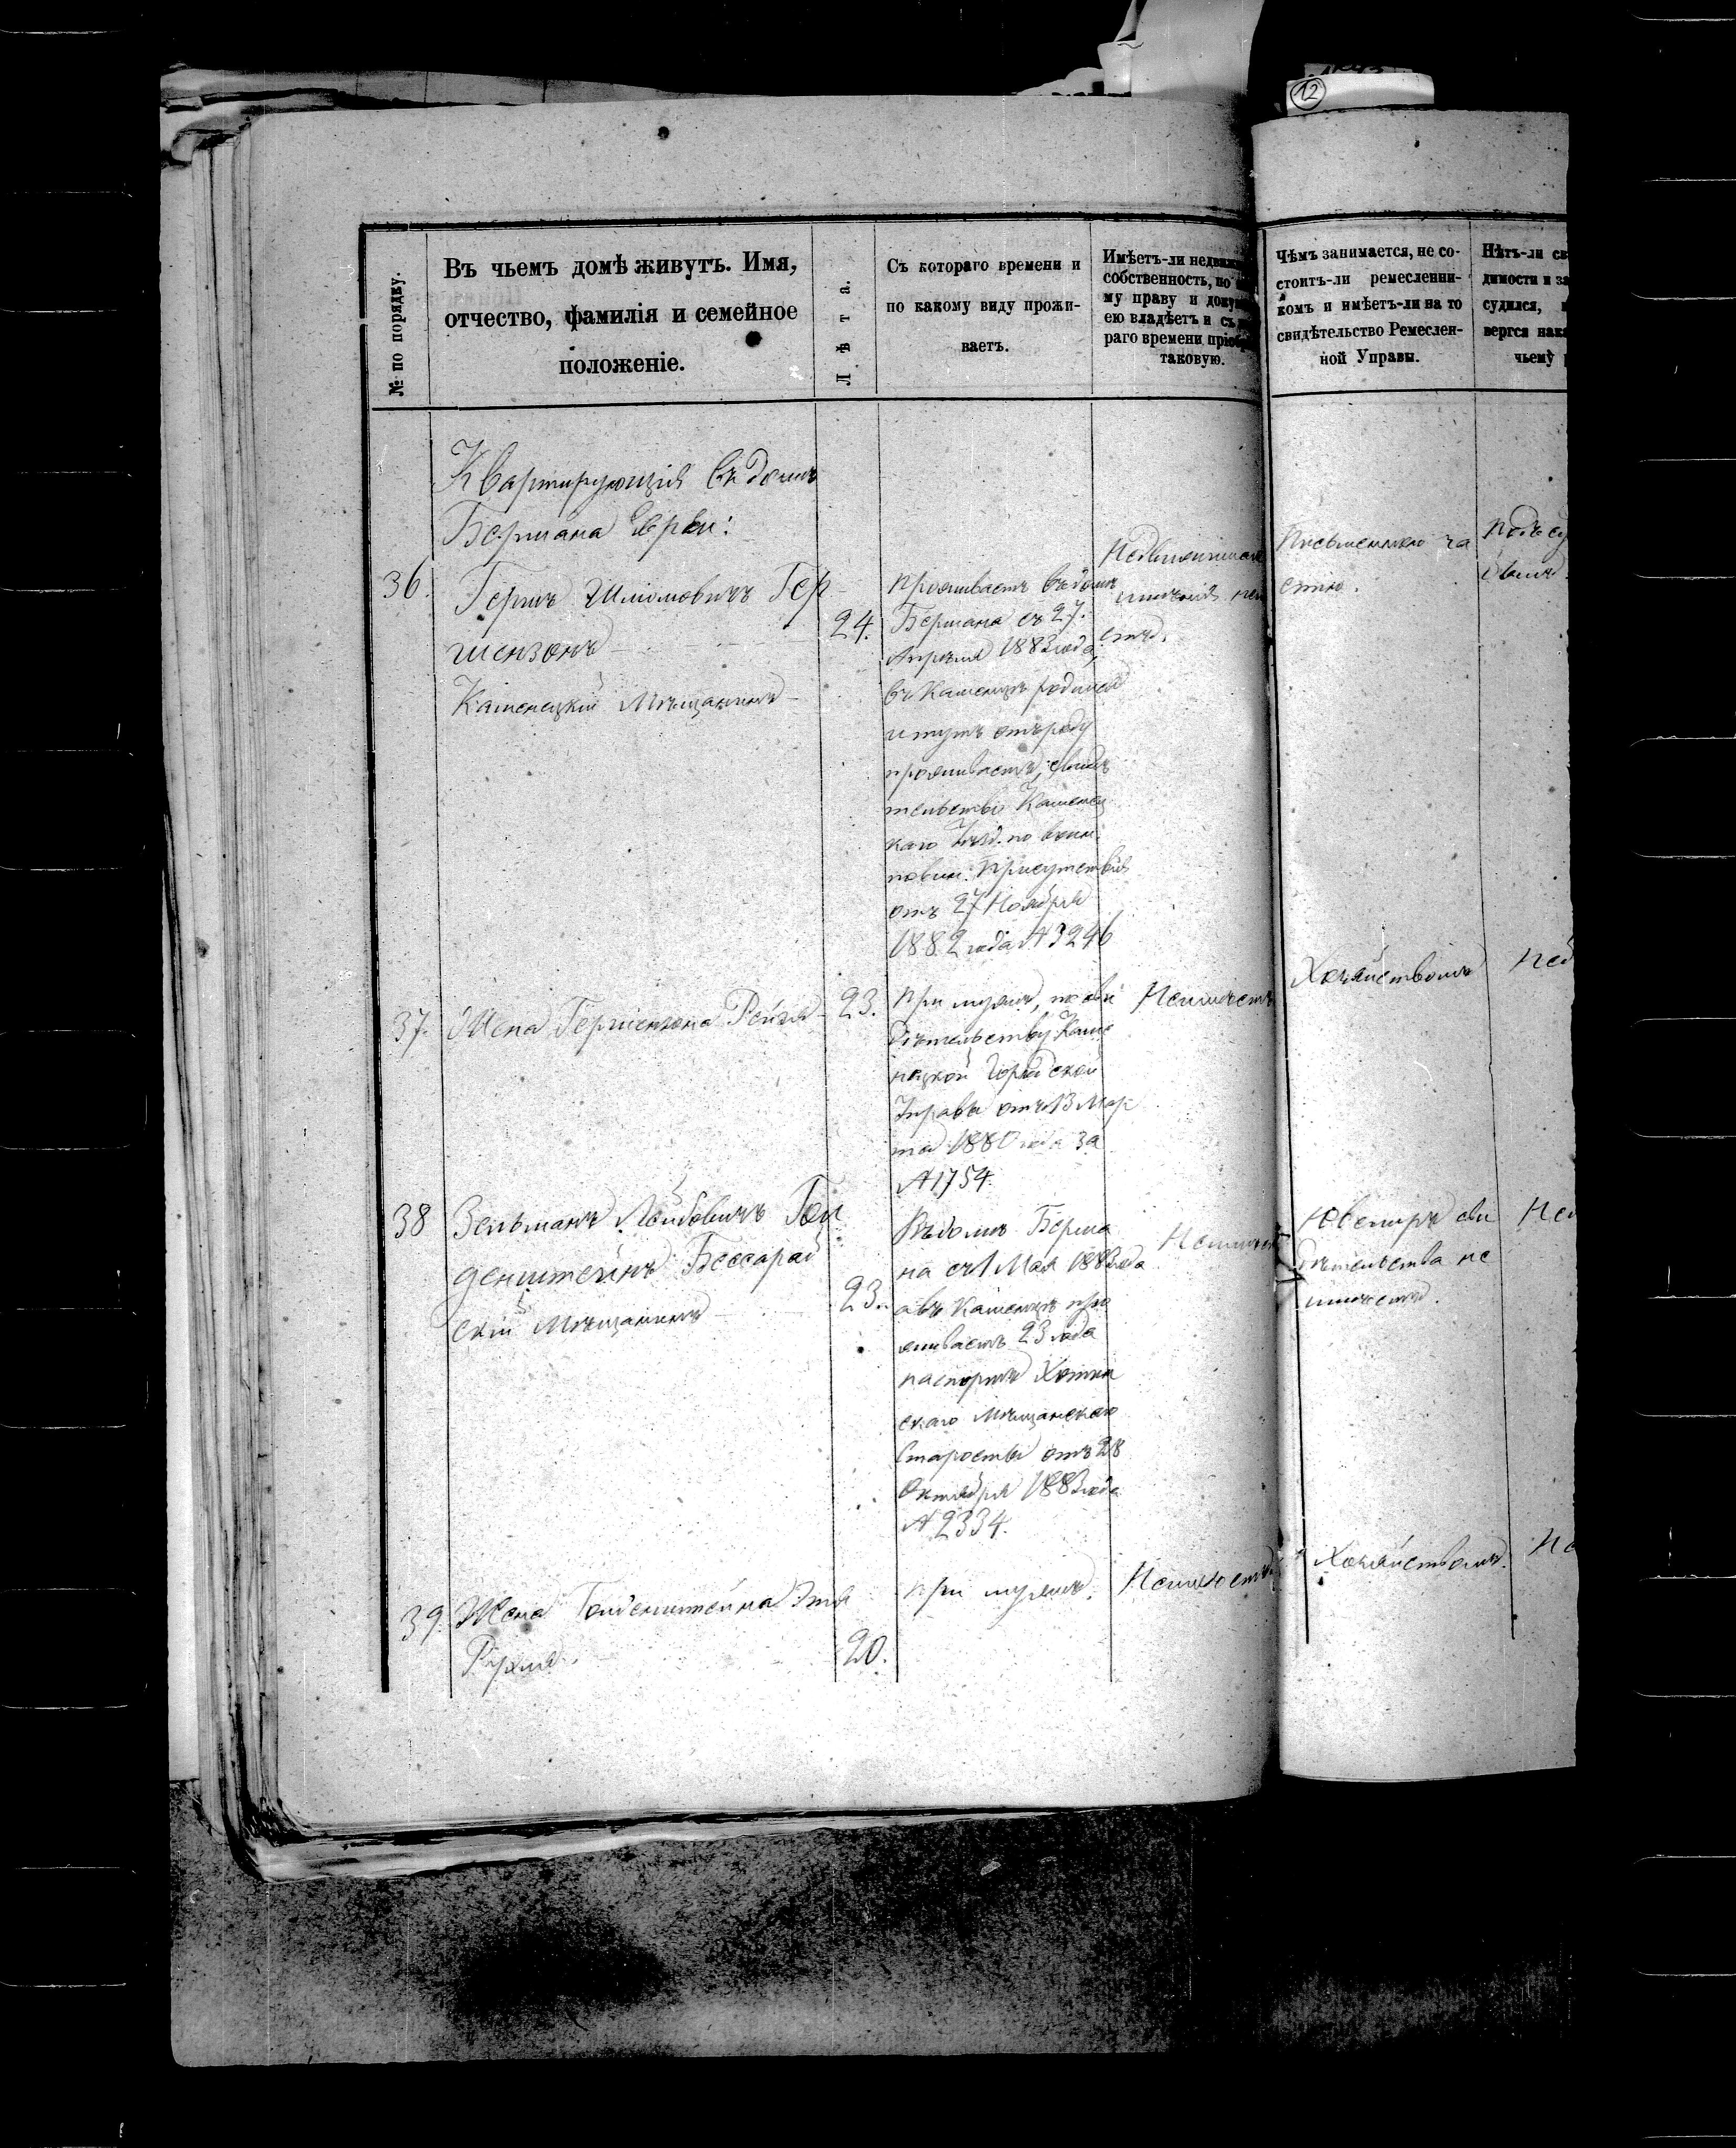 12
№ по порядку.
Въ чьемъ домѣ живутъ. Имя,
отчество, фамилія и семейное
положеніе.
Лѣта.
Съ котораго времени и
по какому виду прожи-
ваетъ.
Имѣетъ-ли недвиж
собственность, по
му праву и доку
ею владѣетъ и съ
раго времени пріоб
таковую.
Чѣмъ занимается, не со-
стоитъ-ли ремесленни-
комъ и имѣетъ-ли на то
свидѣтельство Ремеслен-
ной Управы.
Нѣтъ-ли
димости и
судился,
вергся нак
чьему
Квартирующія въ домѣ
Бермана Евреи:
36.
Гершъ Шліомовичъ Гер
шензонъ
Каменецкій Мѣщанинъ
24.
Проживаетъ въ домѣ
Бермана съ 27.
Апрѣля 1883 года,
въ Каменцѣ родился
и тутъ отъ роду
проживаетъ, свидѣ
тельство Каменец
каго Уѣзд. по воин.
повин. Присутствія
отъ 27 Ноября
1882 года № 3246
имѣнія
Письменною ча
стію.
Подъ су
37.
Жена Гершензона Рейзя
23.
При мужѣ, по сви
дѣтельству Каме
нецкой Городской
Управы отъ 13 Мар
та 1880 года за
№ 1754.
Неимѣетъ
Хозяйствомъ
38
Зельманъ Лейбовичъ Гол
денштейнъ Бессараб
скій Мѣщанинъ
23.
Въ домѣ Берма
на съ 1 Мая 1883 года
а въ Каменцѣ про
живаетъ 23 года
паспортъ Хотин
скаго Мѣщанскаго
Старосты отъ 28
Октября 1883 года
№ 2334.
Ювелиръ сви
дѣтельства не
имѣетъ.
39.
Жена Голденштейна Этя
Рухля.
20.
При мужѣ.
Неимѣетъ
Хозяйствомъ.